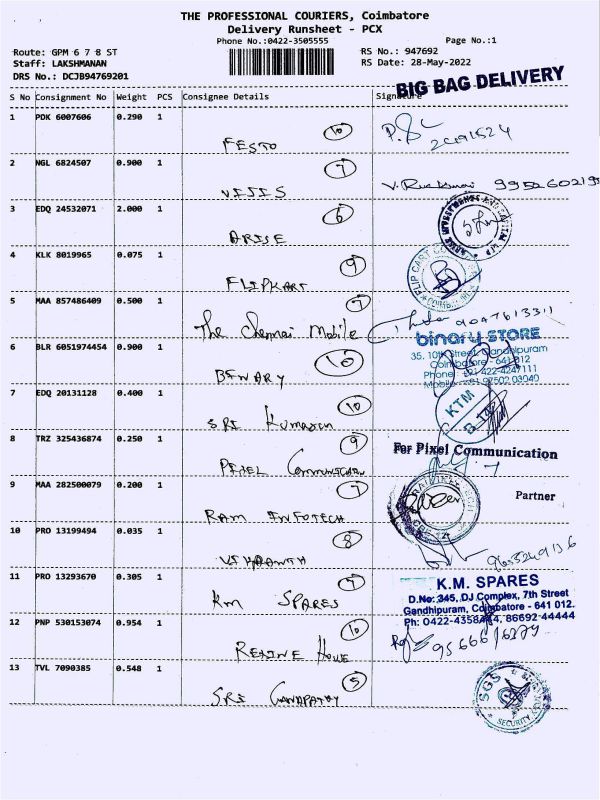 THE PROFESSIONAL COURIERS, Coimbatore
Delivery Runsheet - PCX
Phone No.:0422-3505555
Page No.:1
Route: GPM 6 7 8 ST
RS No.: 947692
Staff: LAKSHMANAN
RS Date: 28-May-2022
DRS No.: DCJB94769201
BIG BAG DELIVERY
S No Consignment No Weight PCS Consignee Details Signature
1 PDK 6007606 0.290 1
FESTO 10
2 NGL 6824507 0.900 1
VIJIS 7
3 EDQ 24532071 2.000 1
ARISE 6
4 KLK 8019965 0.075 1
FLIPKART 9
5 MAA 857486409 0.500 1
The Chennai Mobile 7
binary STORE
35, 10th Street, Gandhipuram
Coimbatore - 641 012
6 BLR 6051974454 0.900 1
BINARY 10
7 EDQ 20131128 0.400 1
KTM
SRI Kumaran 10
8 TRZ 325436874 0.250 1
For Pixel Communication
PIXEL Communication 9
9 MAA 282500079 0.200 1
Partner
RAM INFOTECH 7
10 PRO 13199494 0.035 1
VIKRANTH 8
11 PRO 13293670 0.305 1
K.M. SPARES
D.No: 345, DJ Complex, 7th Street
Gandhipuram, Coimbatore - 641 012.
Ph: 0422-4358444, 86692 44444
KM SPARES 7
12 PNP 530153074 0.954 1
10
13 TVL 7090385 0.548 1
SRI GANAPATHY 5
SGS
SECURITY